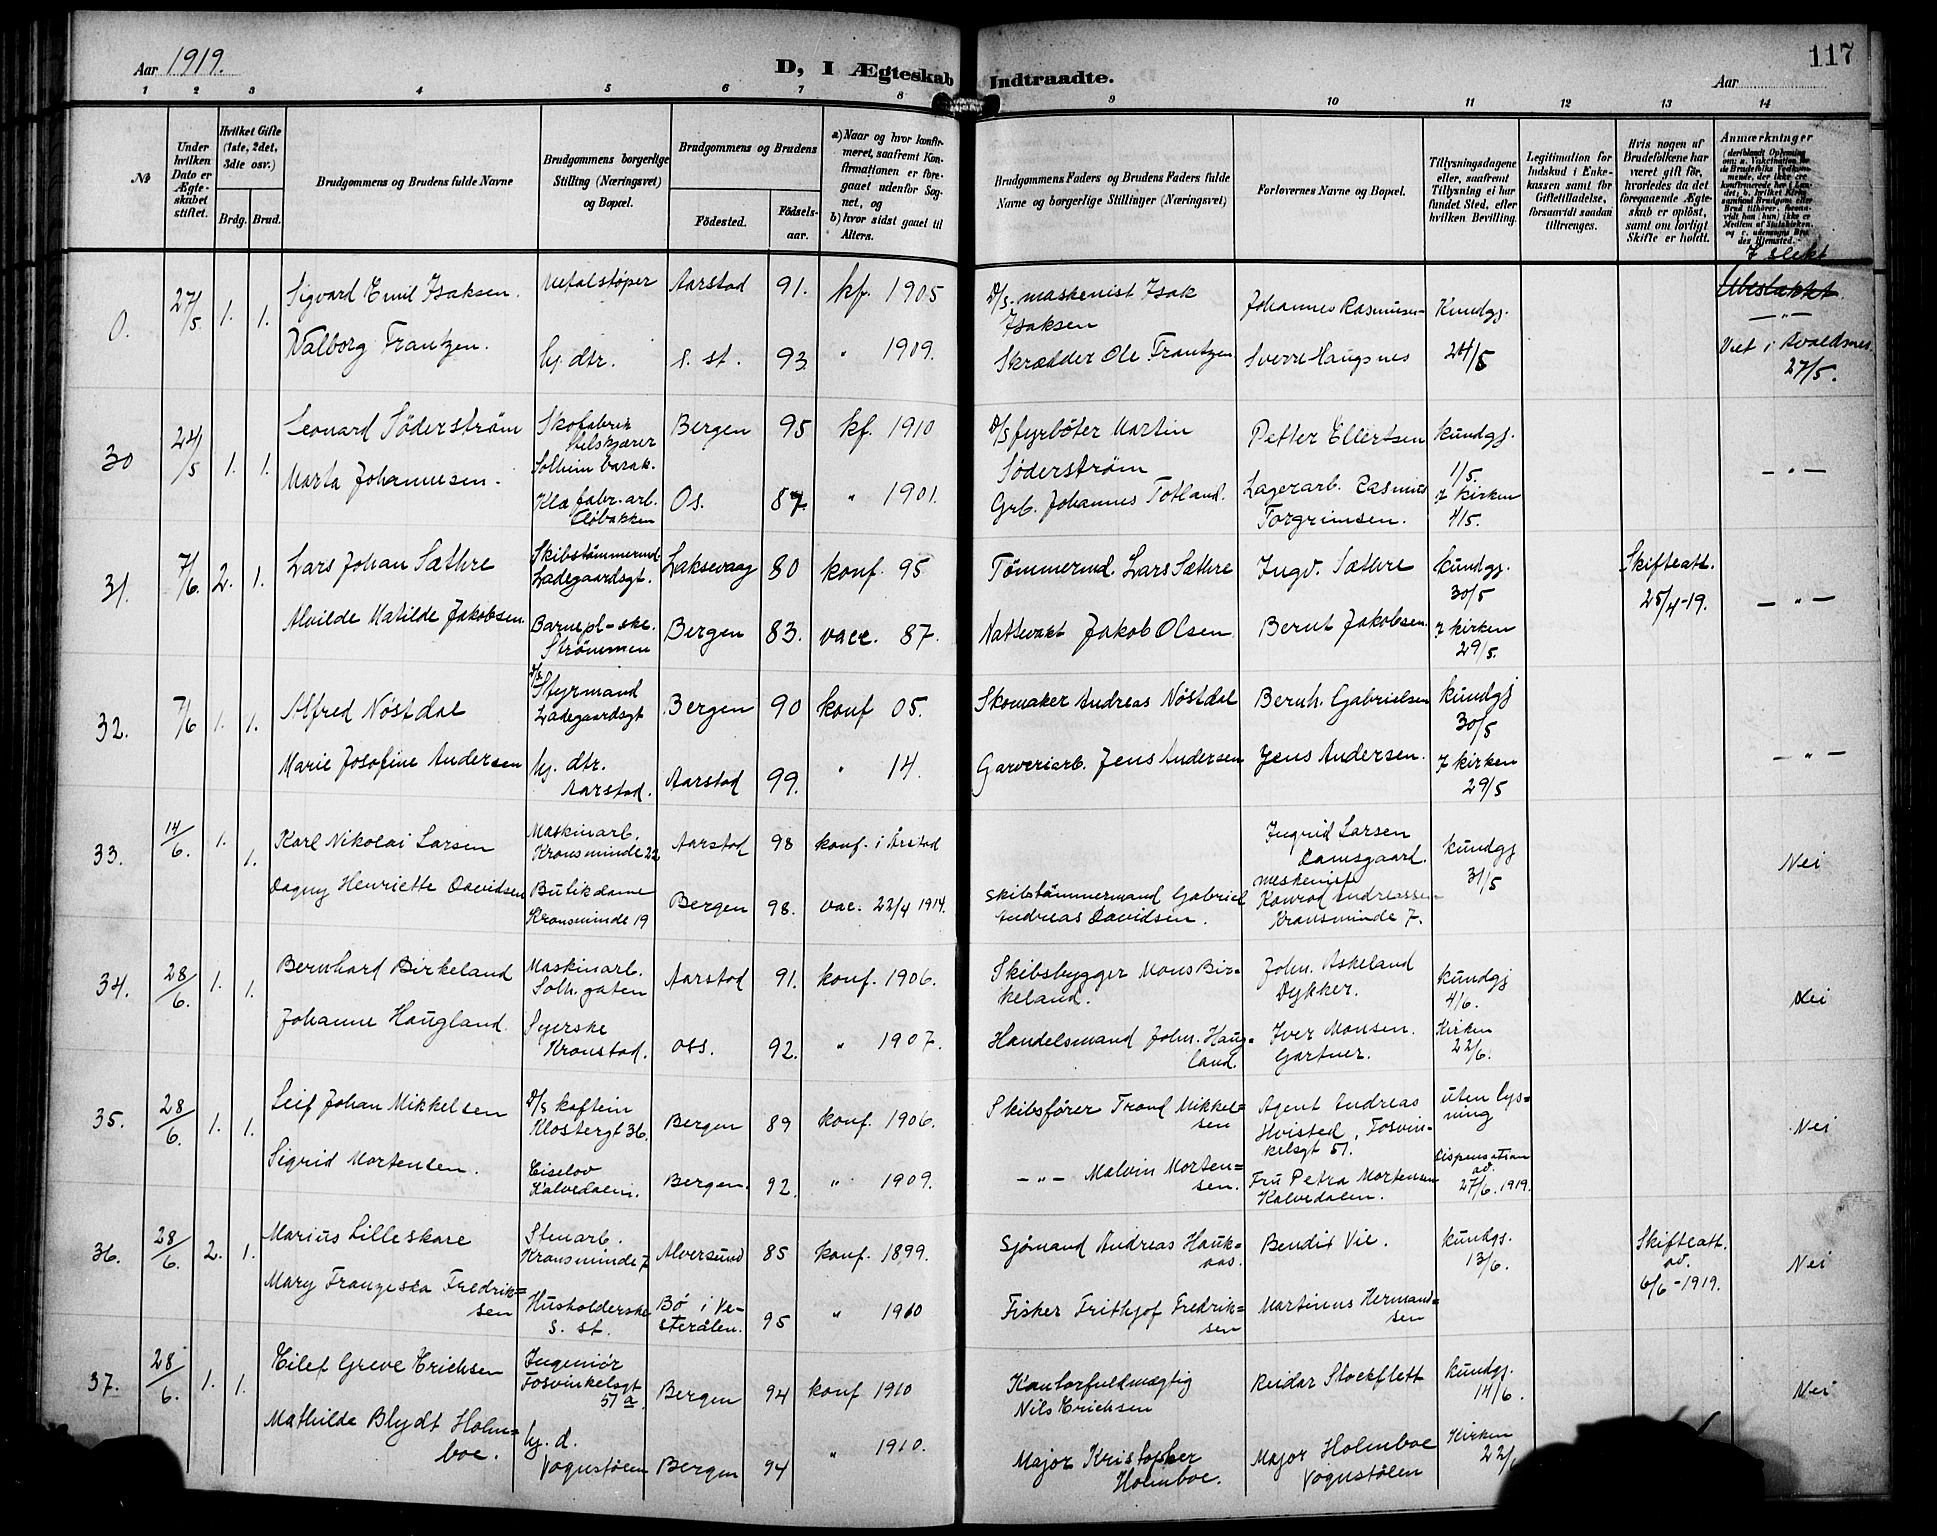 117
Aar 1919.
D, I Ægteskab Indtraadte.
Aar
1 2 3 4 5 6 7 8 9 10 11 12 13 14
No
Under hvilken Dato er Ægteskabet stiftet.
Hvilket Gifte (1ste, 2det, 3die osv.)
Brdg. Brud.
Brudgommens og Brudens fulde Navne
Brudgommens borgerlige Stilling (Næringsvei) og Bopæl.
Brudgommens og Brudens
Fødested.
Fødselsaar.
a) Naar og hvor konfirmeret, saafremt Konfirmationen er foregaaet udenfor Sognet, og
b) hvor sidst gaaet til Alters.
Brudgommens Faders og Brudens Faders fulde Navne og borgerlige Stillinger (Næringsvei)
Forlovernes Navne og Bopæl.
Tillysningsdagene eller, saafremt Tillysning ei har fundet Sted, efter hvilken Bevilling.
Legitimation for Indskud i Enkekassen samt for Giftetilladelse, forsaavidt saadan tiltrænges.
Hvis nogen af Brudefolkene har været gift før, hvorledes da det foregaaende Ægteskab er opløst, samt om lovligt Skifte er holdt.
Anmærkninger
(deriblandt Oplysning om: a. Vakcination

0. 27/5 1. 1. Sigvard Emil Isaksen. Metalstøper Aarstad 91. kf. 1905 D/S. maskenist Isak Isaksen Johannes Rasmussen Kundgj. 24/5
Valborg Frantzen. hj. dtr. s. st. 93 " 1909. Skrædder Ole Frantzen Sverre Haugsnes
I slekt
Ubeslæktet.
— " —
Viet i Avaldsnes 27/5.

30 24/5 1. 1. Leonard Söderström Skofabrik Stelskjærer Solheim barak. Bergen 95 kf. 1910 D/S fyrböter Martin Söderström Petter Ellertsen kundgj. 1/5.
Marta Johannesen. Klæ fabr. arb. Os. 87. " 1901. Grb. Johannes Totland. Lagerarb. Rasmus Torgrimsen. I kirken 4/5.
— " —

31. 7/6 2. 1. Lars Johan Sæthre Skibstömmermd. Ladegaardsgt. Laksevaag 80 konf. 95 Tömmermd. Lars Sæthre Ingv. Sæthre kundgj. 30/5 Skifteatt. 25/4-19.
Alvilde Matilde Jakobsen. Barnepl-ske. Strömmen Bergen 83. vacc. 87. Nattevakt Jakob Olsen Bernt Jakobsen. I kirken 29/5.
— " —

32. 7/6 1. 1. Alfred Nöstdal D/S Styrmand Ladegaardsgt Bergen 90 konf 05. Skomaker Andreas Nöstdal Bernh. Gabrielsen kundgj 30/5
Marie Josefine Andersen hj. dtr. Aarstad. Aarstad 99. " 14. Garveriarb. Jens Andersen Jens Andersen. I kirken 29/5
— " —

33. 14/6. 1. 1. Karl Nikolai Larsen Maskinarb. Kronsminde 22 Aarstad 98 konf. i Årstad Ingrid Larsen Damsgaard. kundgj 31/5
Dagny Henriette Davidsen Butikdame Kronsminde 19 Bergen 98. vac. 22/4 1914. Skibstömmermand Gabriel Andreas Davidsen. Konrad Andreassen Kronsminde 7.
Nei

34. 28/6. 1. 1. Bernhard Birkeland Maskinarb. Solh.gaten Aarstad 91. konf. 1906. Skibsbygger Mons Birkeland. Johs. Askeland Dykker. kundgj 4/6.
Johanne Haugland. Syerske Kronstad. Oss. 92. " 1907. Handelsmand Johs. Haugland. Iver Monsen. Gartner. Kirken 22/6.
Nei

35. 28/6. 1. 1. Leif Johan Mikkelsen D/S kaftein Klostergt 36. Bergen 89 konf. 1906. Skibsförer Trond Mikkelsen Agent Andreas Hvisted, Fosvinkelsgt 51. uten lysning
Sigrid Mortensen. Ciselör Kalvedalen. Bergen. 92. " 1909. — " — Malvin Mortensen. Fru Petra Mortensen Kalvedalen. Dispensation av. 27/6. 1919.
Nei

36. 28/6. 2. 1. Marius Lilleskare Stenarb. Kronsminde 7 Alversund 85 konf. 1899. Sjömand Andreas Haukaas. Bendix Vie. kundgj. 13/6. Skifteatt. av. 6/6-1919.
Mary Franzeska Fredriksen Husholderske s. st. Bö i Vesterålen. 95 " 1910 Fisker Frithjof Fredriksen Martinus Hermandsen
Nei

37. 28/6. 1. 1. Eilef Greve Erichsen Ingeniör Fosvinkelsgt 51 a. Bergen 94 konf 1910 Kontorfuldmægtig Nils Erichsen Reidar Stockflett kundgj. 14/6.
Mathilde Blydt Holmboe. hj. d. Vognstölen Bergen 94 " 1910. Major Kristopher Holmboe. Major Holmboe Vognstölen Kirken 22/
Nei